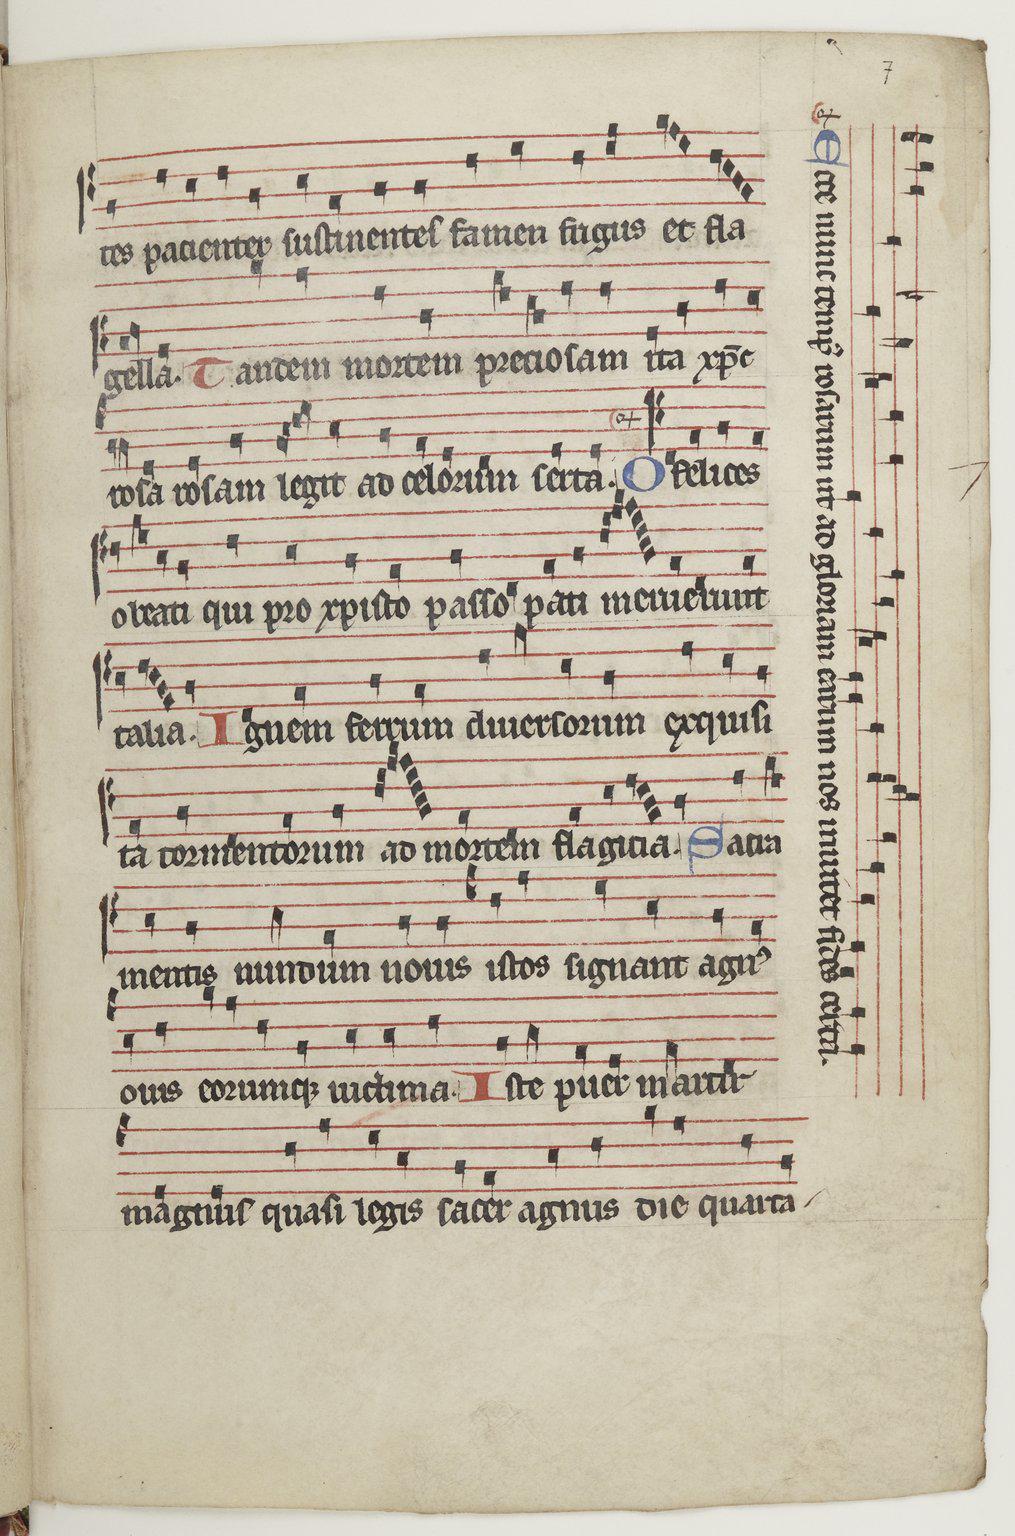 7
tes pacienter sustinentes famen frigus et fla
gella. Tandem mortem preciosam ita xp̄c
rosa rosam legit ad celorum serta. O felices
o beati qui pro xpisto passo pati meruerunt
talia. Ignem ferrum diuersorum exquisi
ta tormentorum ad mortem flagicia. Sacra
mentis mirum nouis istos signant agnꝰ
ouis eorumqꝫ uictima. Iste puer martir
magnus quasi legis sacer agnus die quarta
Ecce nunc tempꝰ rosarum ut ad gloriam earum nos inuitet fides certa.